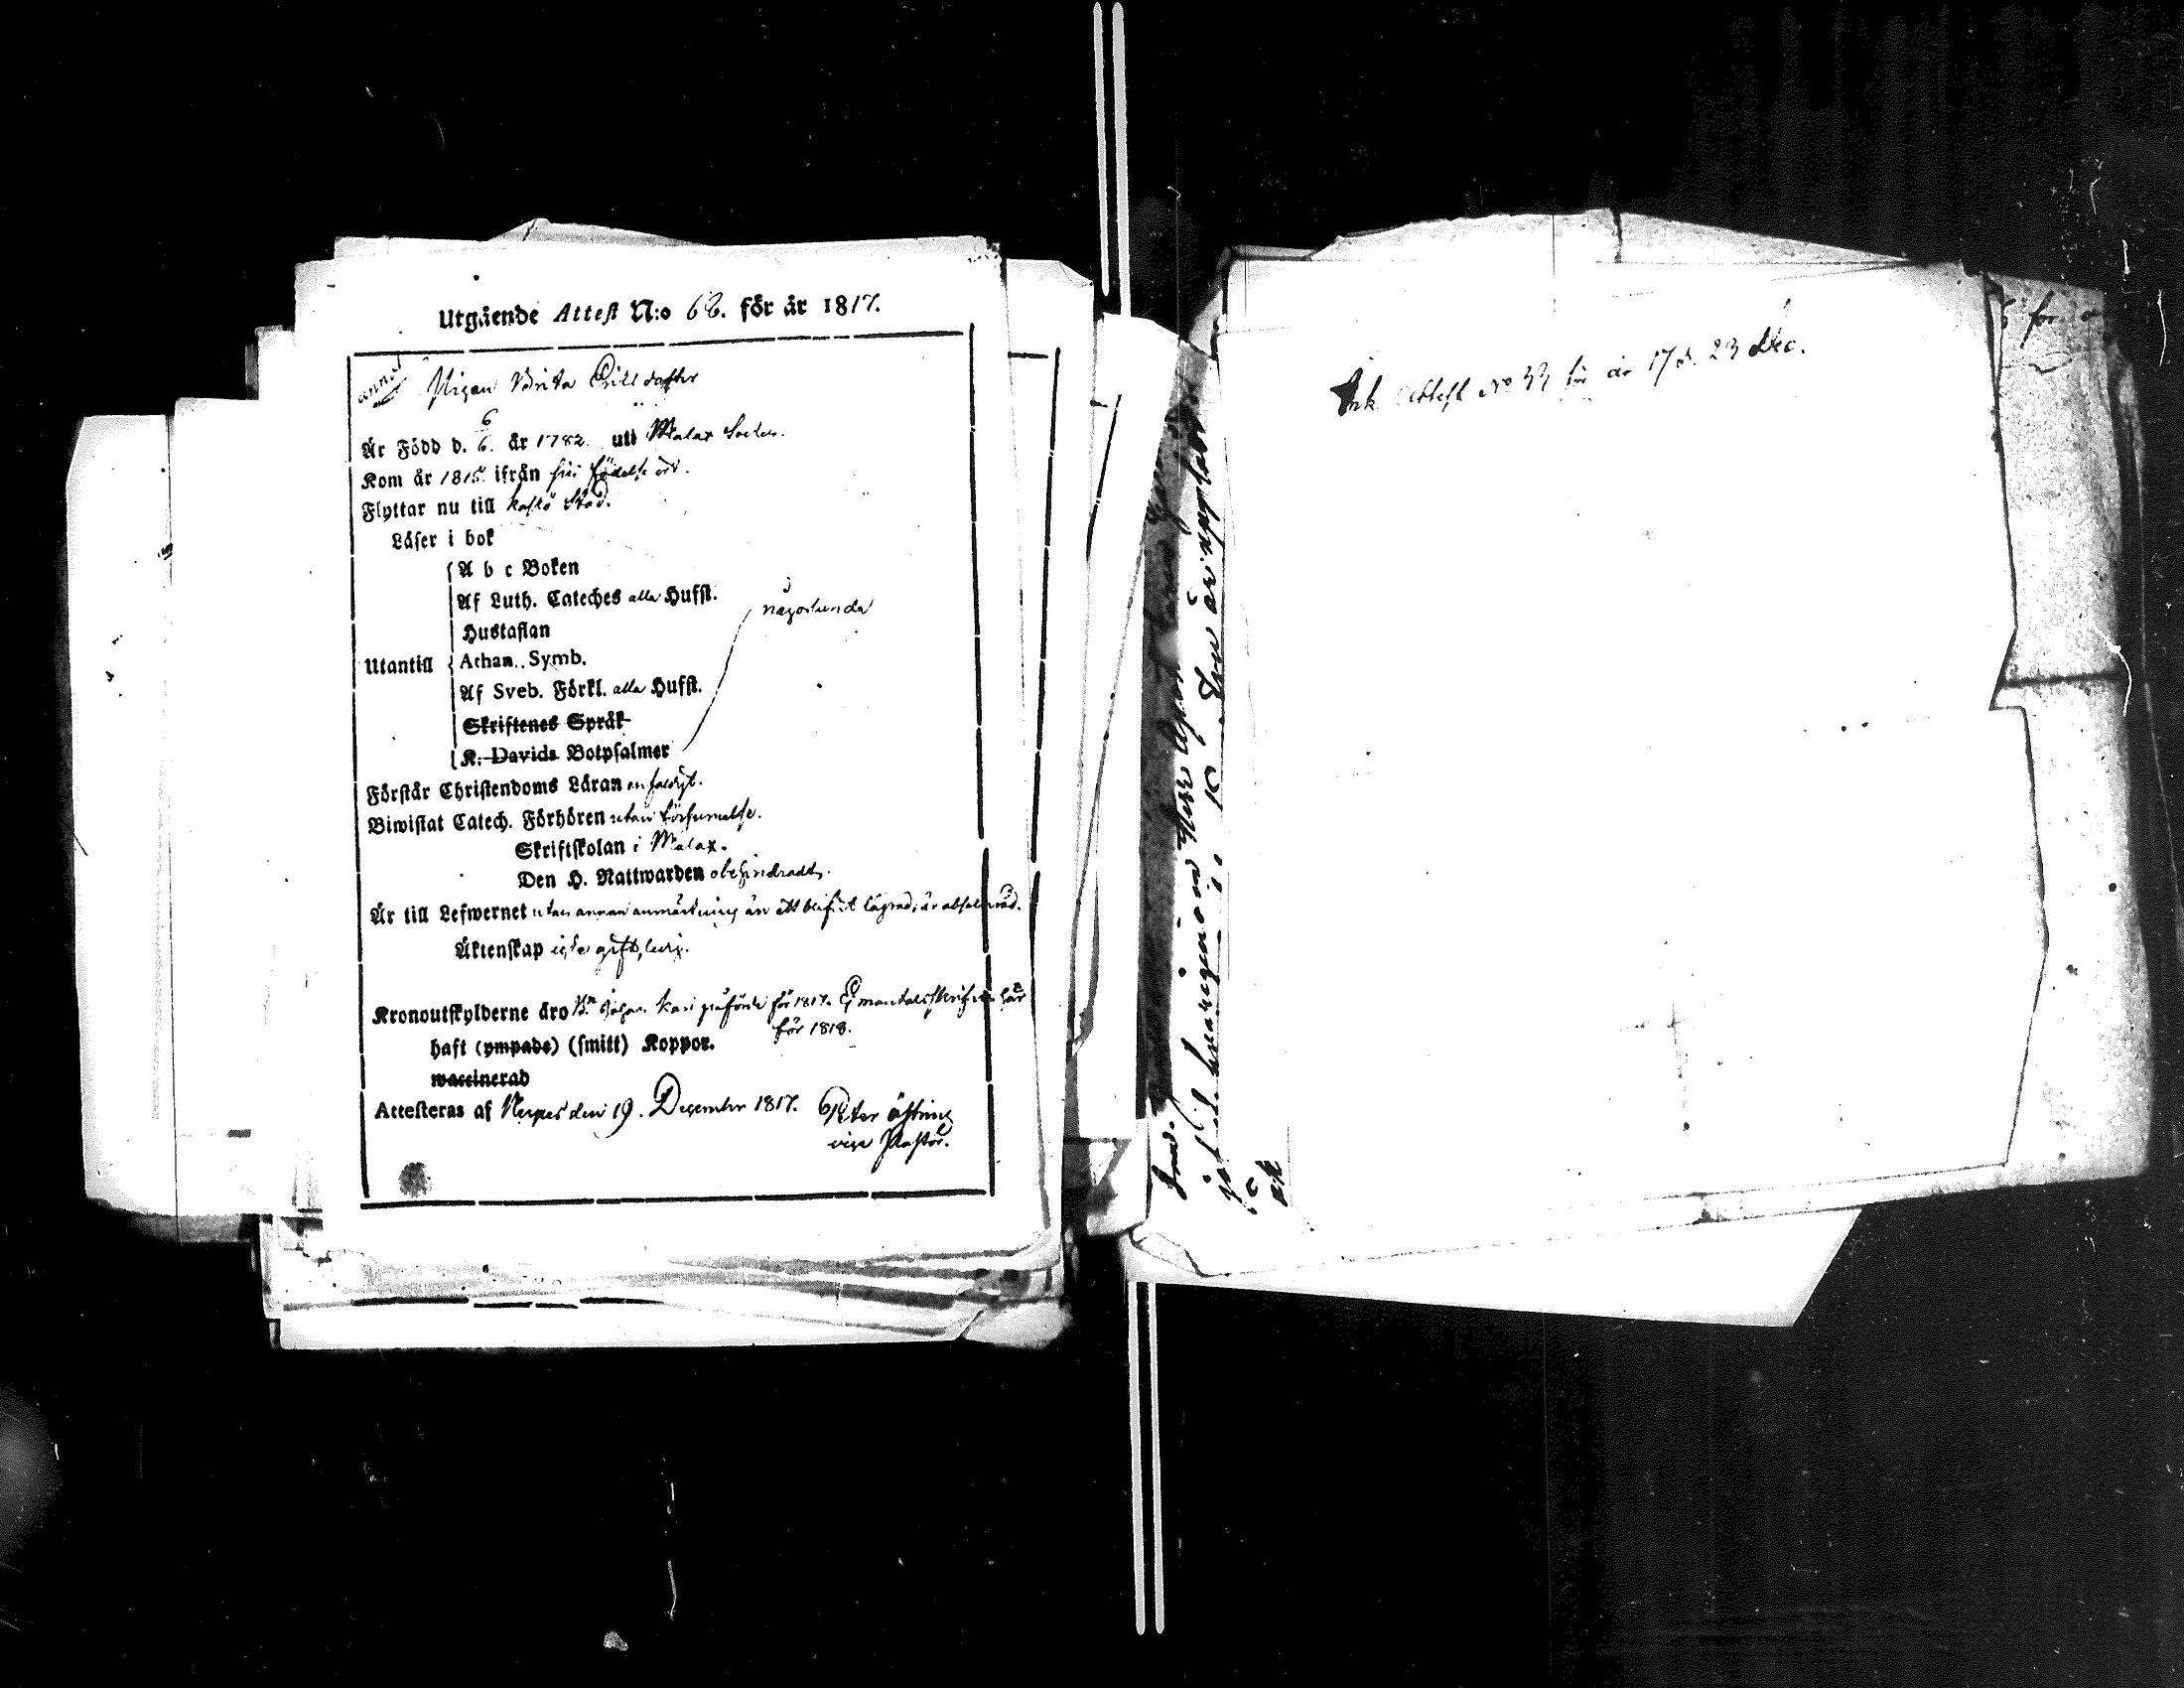 Utgående Attest N:o 68. för år 1817.
Pigan Brita Ericsdotter
Är Född d. 6/6. år 1782. uti Malax Socken.
Kom år 1815 ifrån sin födelse ort.
Flyttar nu till Kaskö Stad.
Läser i bok
A b c Boken
Af Luth. Cateches alla Hufst.
någorlunda
Hustaflan
Utantill Athan. Symb.
Af Sveb. Förkl. alla Hufst.
Skriftenes Språk
K. Davids Botpsalmer
Förstår Christendoms Läran enfaldigt.
Biwistat Catech. Förhören utan försumelse.
Skriftskolan i Malax.
Den H. Nattwarden obehindradt.
Är till Lefwernet utan annan anmärkning än att blifvit lägrad, är absolverad.
Äktenskap icke gift, ledig.
Kronoutskylderne äro påförde för 1817. Ej mantalsskrifven här
för 1818.
haft (ympade) (smitt) Koppor.
waccinerad
Attesteras af Nerpes den 19. December 1817. Peter Östring
vice Pastor.
Ink. Attest No 33 för år 17 d. 23 Dec.